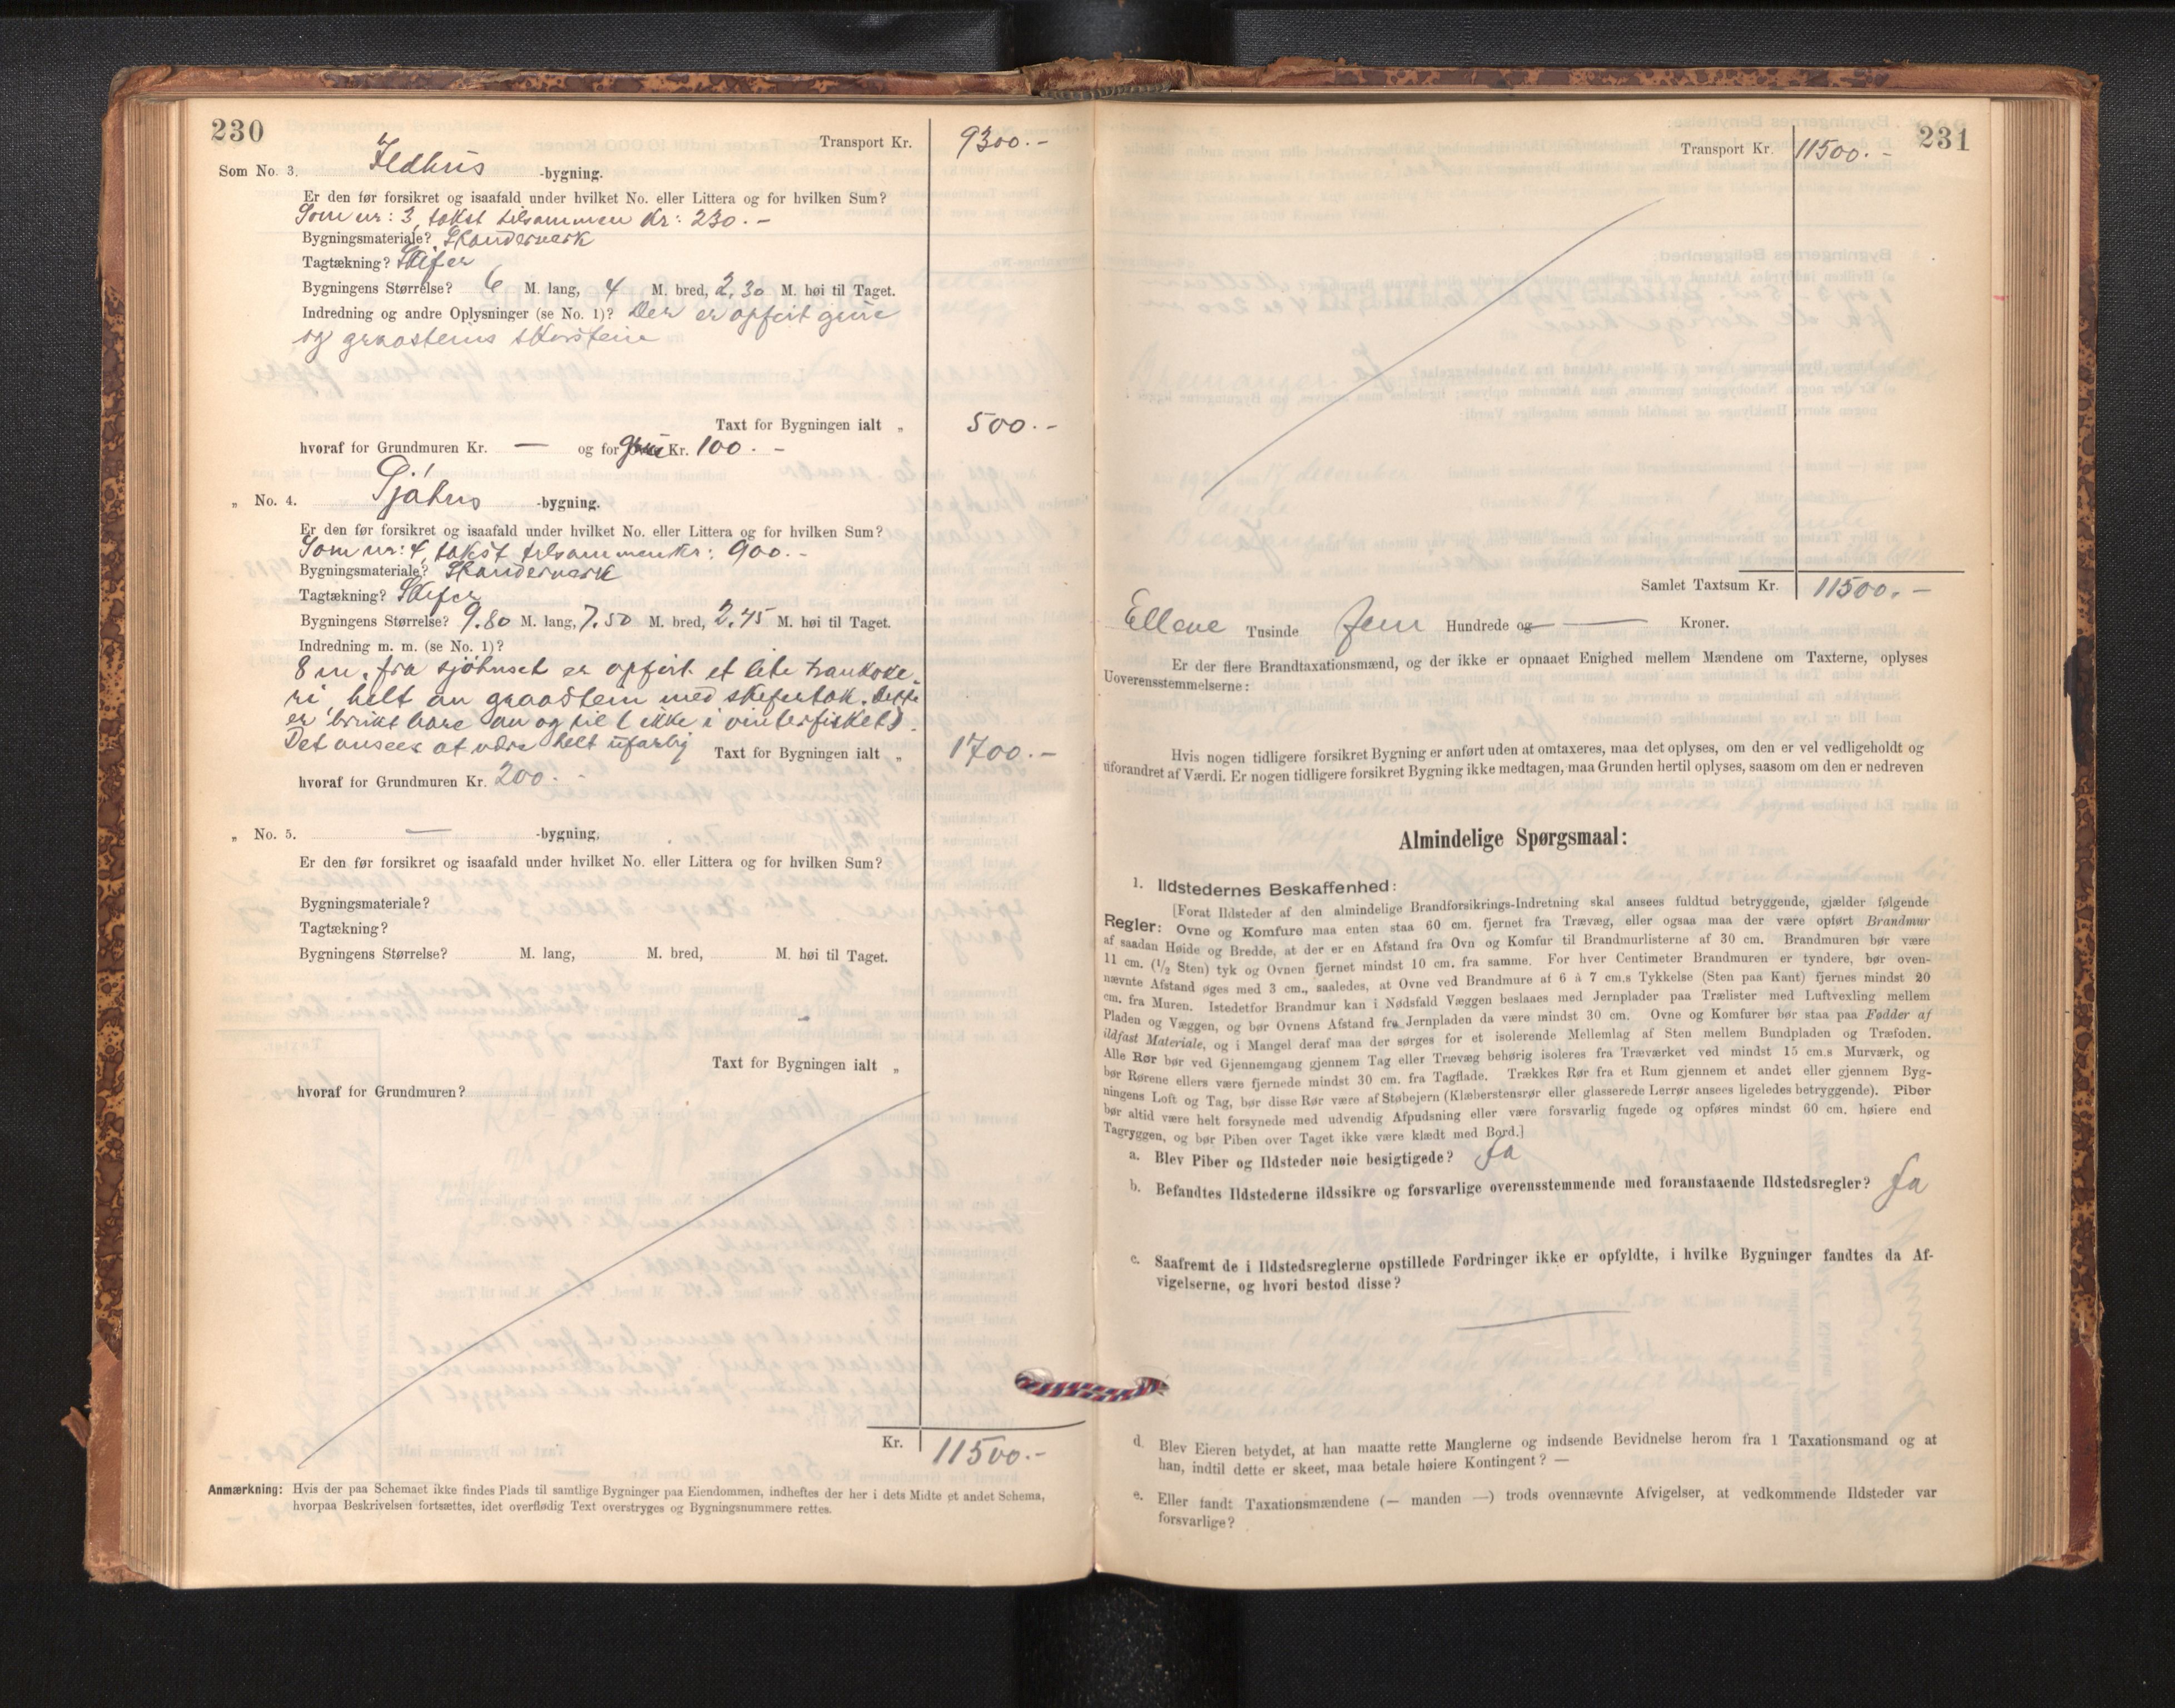 230
Transport Kr. 9300.-
Som No. 3. Ildhus -bygning.
Er den før forsikret og isaafald under hvilket No. eller Littera og for hvilken Sum?
Som nr: 3, takst tilsammen Kr: 230.-
Bygningsmateriale? Skanderværk
Tagtækning? Skifer
Bygningens Størrelse? 6 M. lang, 4 M. bred, 2,30 M. høi til Taget.
Indredning og andre Oplysninger (se No. 1)? Der er opført grue
og graasteins skorstein
Taxt for Bygningen ialt „ 500.-
hvoraf for Grundmuren Kr. — og for grue Kr. 100.-
„ No. 4. Sjøhus -bygning.
Er den før forsikret og isaafald under hvilket No. eller Littera og for hvilken Sum?
Som nr: 4, takst tilsammen kr: 900.-
Bygningsmateriale? Skanderværk
Tagtækning? Skifer
Bygningens Størrelse? 9.80 M. lang, 7.50 M. bred, 2.45 M. høi til Taget.
Indredning m. m. (se No. 1)?
8 m. fra sjøhuset er opført et lite trankoke-
ri, helt au graastein med skifertak. Dette
er brukt bare au og til (ikke i vinterfisket).
Det ansees at være helt ufarlig
Taxt for Bygningen ialt „ 1700.-
hvoraf for Grundmuren Kr. 200.-
„ No. 5. — -bygning.
Er den før forsikret og isaafald under hvilket No. eller Littera og for hvilken Sum?
Bygningsmateriale?
Tagtækning?
Bygningens Størrelse? M. lang, M. bred, M. høi til Taget.
Taxt for Bygningen ialt „
hvoraf for Grundmuren?
Kr. 11500.-
Anmærkning: Hvis der paa Schemaet ikke findes Plads til samtlige Bygninger paa Eiendommen, indheftes der her i dets Midte et andet Schema,
hvorpaa Beskrivelsen fortsættes, idet overflødig Text overstryges og Bygningsnummere rettes.
231
Transport Kr. 11500.-
Samlet Taxtsum Kr. 11500.-
Elleve Tusinde fem Hundrede og — Kroner.
Er der flere Brandtaxationsmænd, og der ikke er opnaaet Enighed mellem Mændene om Taxterne, oplyses
Uoverensstemmelserne:
Hvis nogen tidligere forsikret Bygning er anført uden at omtaxeres, maa det oplyses, om den er vel vedligeholdt og
uforandret af Værdi. Er nogen tidligere forsikret Bygning ikke medtagen, maa Grunden hertil oplyses, saasom om den er nedreven
Almindelige Spørgsmaal:
1. Ildstedernes Beskaffenhed:
[Forat Ildsteder af den almindelige Brandforsikrings-Indretning skal ansees fuldtud betryggende, gjælder følgende
Regler: Ovne og Komfure maa enten staa 60 cm. fjernet fra Trævæg, eller ogsaa maa der være opført Brandmur
af saadan Høide og Bredde, at der er en Afstand fra Ovn og Komfur til Brandmurlisterne af 30 cm. Brandmuren bør være
11 cm. (1/2 Sten) tyk og Ovnen fjernet mindst 10 cm. fra samme. For hver Centimeter Brandmuren er tyndere, bør oven-
nævnte Afstand øges med 3 cm., saaledes, at Ovne ved Brandmure af 6 à 7 cm.s Tykkelse (Sten paa Kant) fjernes mindst 20
cm. fra Muren. Istedetfor Brandmur kan i Nødsfald Væggen beslaaes med Jernplader paa Trælister med Luftvexling mellem
Pladen og Væggen, og bør Ovnens Afstand fra Jernpladen da være mindst 30 cm. Ovne og Komfurer bør staa paa Fødder af
ildfast Materiale, og i Mangel deraf maa der sørges for et isolerende Mellemlag af Sten mellem Bundpladen og Træfoden.
Alle Rør bør ved Gjennemgang gjennem Tag eller Trævæg behørig isoleres fra Træværket ved mindst 15 cm.s Murværk, og
bør Rørene ellers være fjernede mindst 30 cm. fra Tagflade. Trækkes Rør fra et Rum gjennem et andet eller gjennem Byg-
ningens Loft og Tag, bør disse Rør være af Støbejern (Klæberstensrør eller glasserede Lerrør ansees ligeledes betryggende). Piber
bør altid være helt forsynede med udvendig Afpudsning eller være forsvarlig fugede og opføres mindst 60 cm. høiere end
Tagryggen, og bør Piben over Taget ikke være klædt med Bord.]
a. Blev Piber og Ildsteder nøie besigtigede? Ja
b. Befandtes Ildstederne ildssikre og forsvarlige overensstemmende med foranstaaende Ildstedsregler? Ja
c. Saafremt de i Ildstedsreglerne opstillede Fordringer ikke er opfyldte, i hvilke Bygninger fandtes da Af-
vigelserne, og hvori bestod disse?
d. Blev Eieren betydet, at han maatte rette Manglerne og indsende Bevidnelse herom fra 1 Taxationsmand og at
han, indtil dette er skeet, maa betale høiere Kontingent? —
e. Eller fandt Taxationsmændene (— manden —) trods ovennævnte Afvigelser, at vedkommende Ildsteder var
forsvarlige?